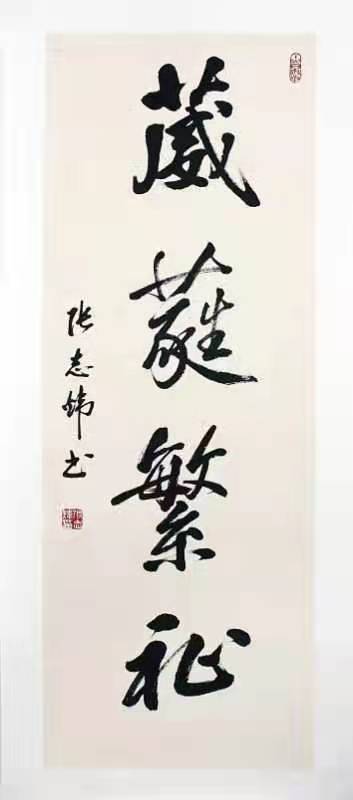 葳蕤繁祉
张志炜书